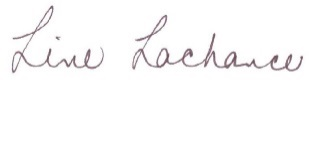 Line Lachance